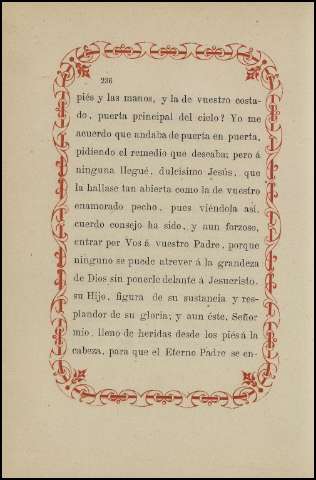 236
piés y las manos, y la de vuestro costa-
do, puerta principal del cielo? Yo me
acuerdo que andaba de puerta en puerta,
pidiendo el remedio que deseaba; pero á
ninguna llegué, dulcísimo Jesús, que
la hallase tan abierta como la de vuestro
enamorado pecho, pues viéndola así,
cuerdo consejo ha sido, y aun forzoso,
entrar por Vos á vuestro Padre, porque
ninguno se puede atrever á la grandeza
de Dios sin ponerle delante á Jesucristo,
su Hijo, figura de su sustancia y res-
plandor de su gloria; y aun éste, Señor
mio, lleno de heridas desde los piés á la
cabeza, para que el Eterno Padre se en-